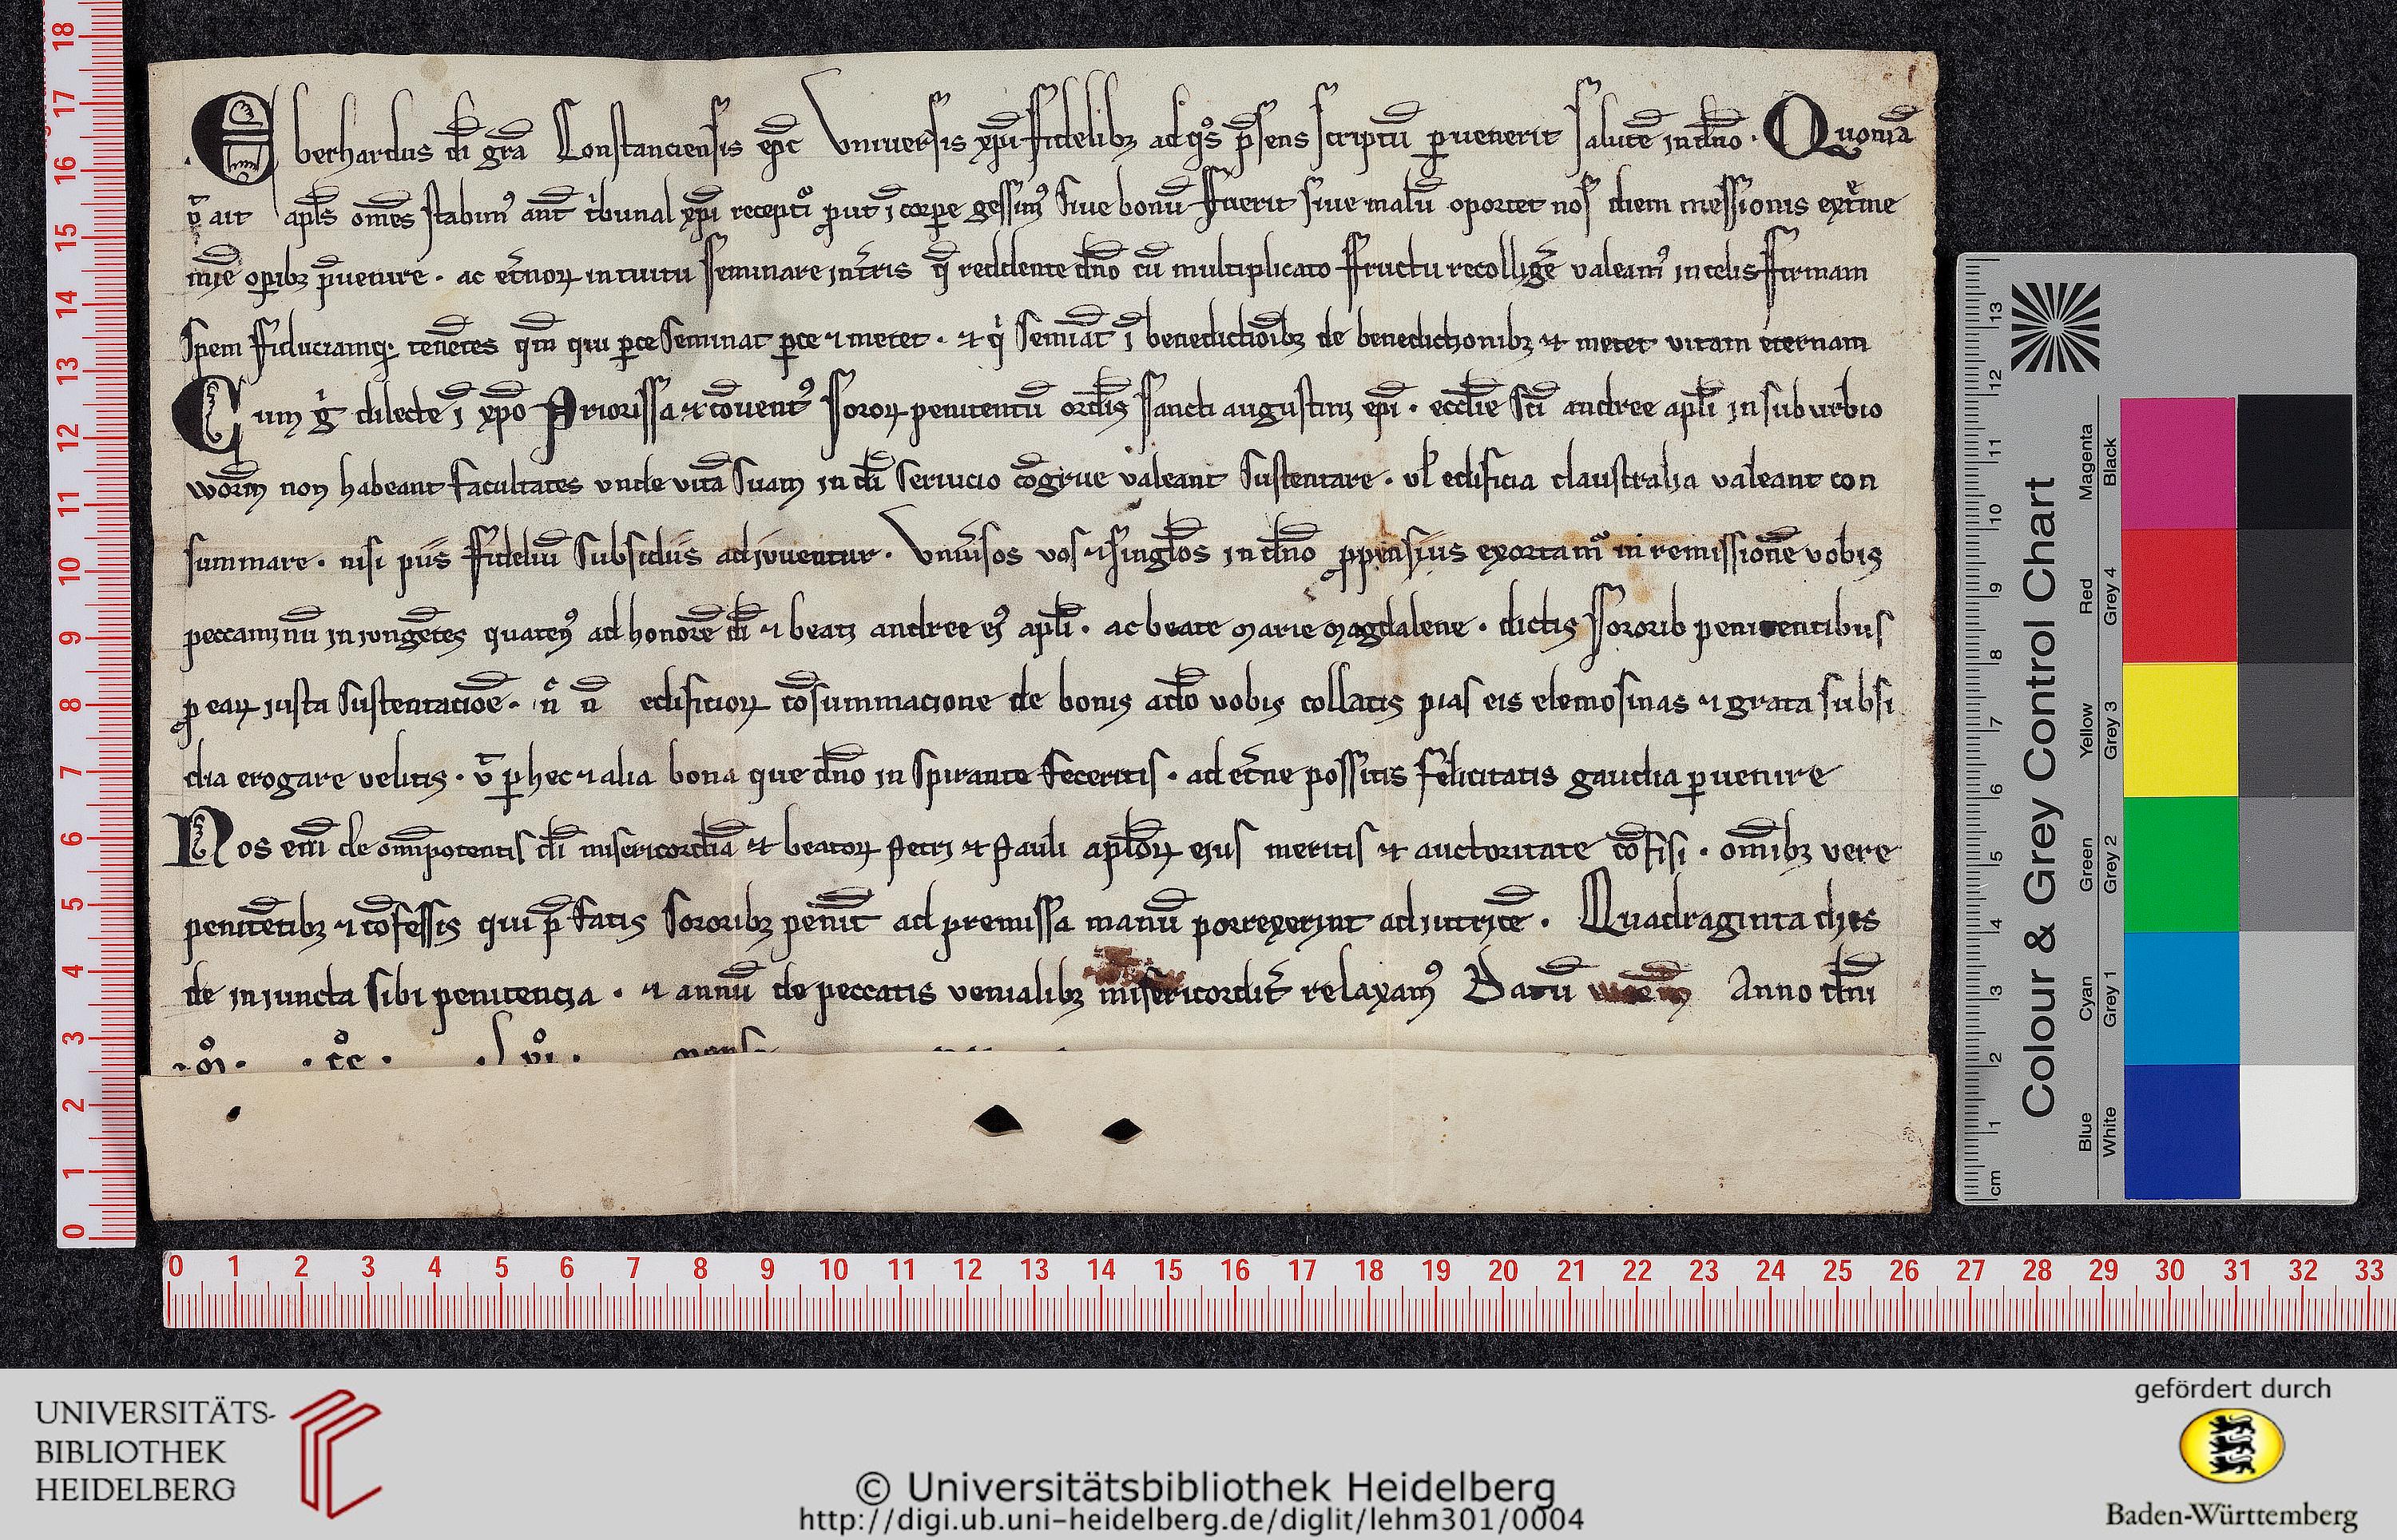 Eberhardus di gra Constanciensis epc Vniuersis xpi fidelibz ad qos psens scriptu puenerit salute in dno · Quonia
ait apls omes stabim9 ant tribunal xpi recepti put i corpe gessim9 siue bonu fuerit siue malu oportet nos diem messionis exteme
mie opibz puenire · ac etnoꝝ intuitu seminare in tris qd reddente dno cu multiplicato fructu recollige valeam9 in celis firmam
spem fiduciamq; tenetes qm qui pce seminat pce ⁊ metet · et qi seminat i benedictioibz de benedictionibz et metet vitam eternam
Cum g dilecte i xpo Priorissa et couent9 soroꝝ penitentu ordis sancti augustini epi · ecclie sci andree apli in suburbio
worm non habeant facultates vnde vita suam in di seruicio cogrue valeant sustentare · vl edificia claustralia valeant con
summare · nisi piis fideliu subsidiis adiuuentur · Vniusos vos ⁊ singlos in dno ppensius exortam in remissione vobis
peccaminu iniungetes quaten9 ad honore di ⁊ beati andree ei9 apli · ac beate marie magdalene · dictis sororib penitentibus
p eaꝝ iusta sustentacioe · n n edificioꝝ cosummacione de bonis a do vobis collatis pias eis elemosinas ⁊ grata subsi
dia erogare velitis · vt p hec ⁊ alia bona que dno inspirante feceritis · ad etne possitis felicitatis gaudia peruenire
Nos eni de omipotentis di misericordia et beatoꝝ petri et pauli aploꝝ eius meritis et auctoritate cofisi · omibz vere
penitetibz ⁊ cofessis qui pfatis sororibz penit ad premissa manu porrexerint adiutrice · Quadraginta dies
de iniuncta sibi penitencia · ⁊ annu de peccatis venialibz misericordit relaxam9 Datu Anno dni
· mo · · cco · · lvio ·
18 17 16 15 14 13 12 11 10 9 8 7 6 5 4 3 2 1 0
0 1 2 3 4 5 6 7 8 9 10 11 12 13 14 15 16 17 18 19 20 21 22 23 24 25 26 27 28 29 30 31 32 33
Colour & Grey Control Chart
Blue Cyan Green Yellow Red Magenta
White Grey 1 Grey 2 Grey 3 Grey 4 Black
cm 1 2 3 4 5 6 7 8 9 10 11 12 13
UNIVERSITÄTS-
BIBLIOTHEK
HEIDELBERG
© Universitätsbibliothek Heidelberg
http://digi.ub.uni-heidelberg.de/diglit/lehm301/0004
gefördert durch
Baden-Württemberg